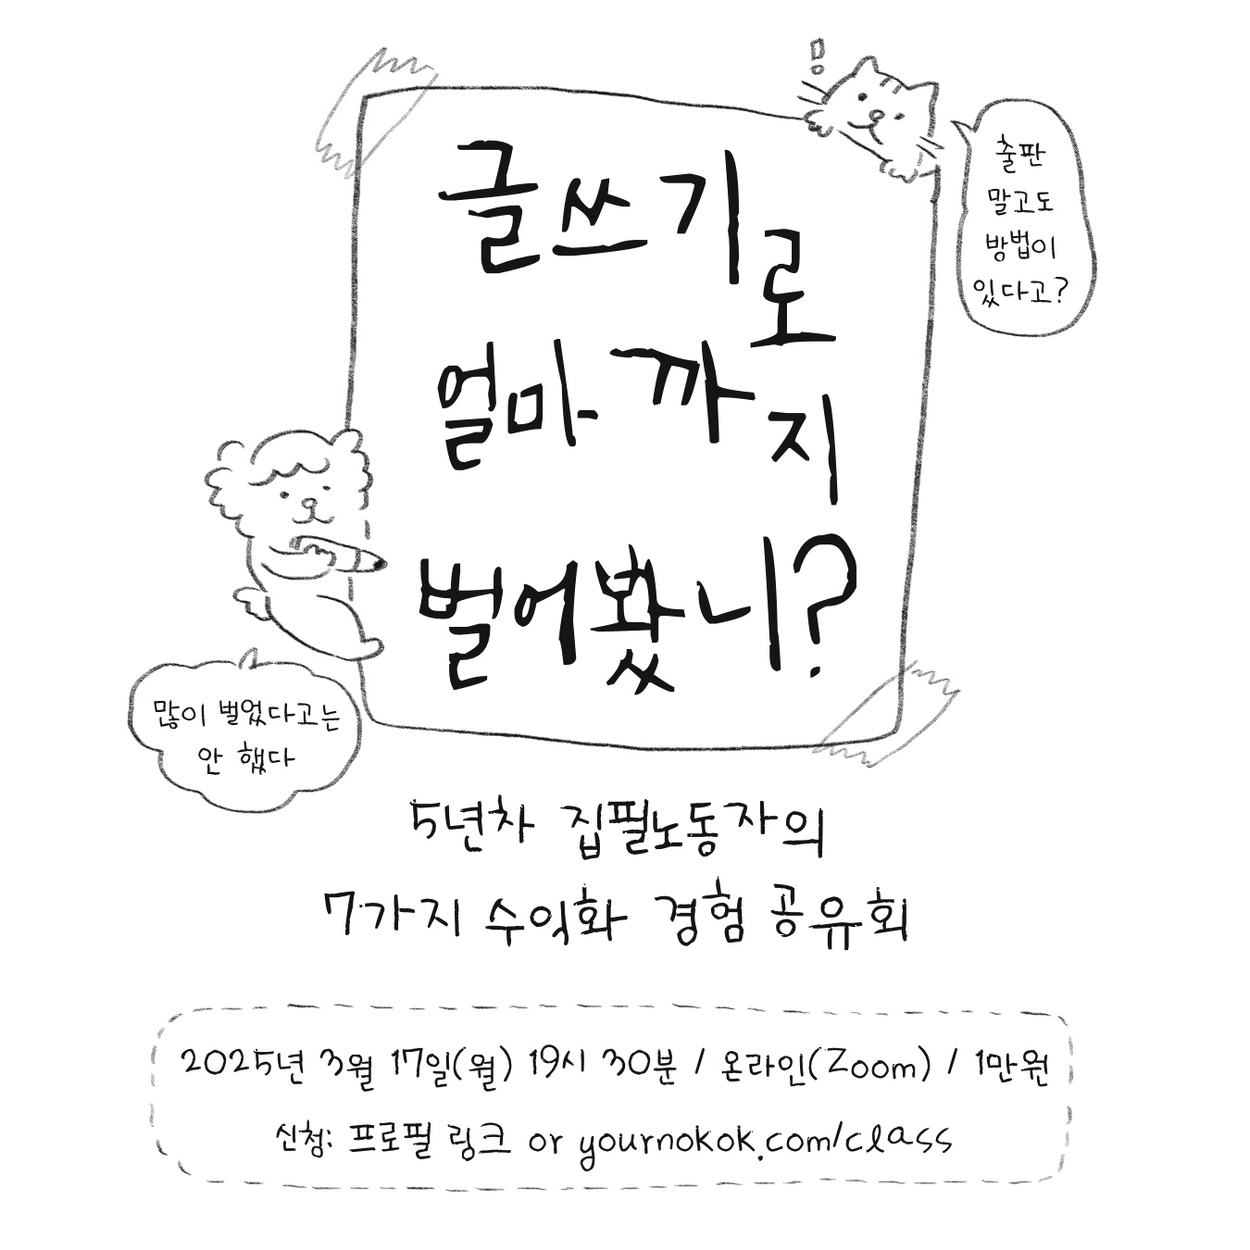 글쓰기로
얼마까지
벌어봤니?
!
출판
말고도
방법이
있다고?
많이 벌었다고는
안 했다
5년차 집필노동자의
7가지 수익화 경험 공유회
2025년 3월 17일(월) 19시 30분 / 온라인(Zoom) / 1만원
신청: 프로필 링크 or yournokok.com/class